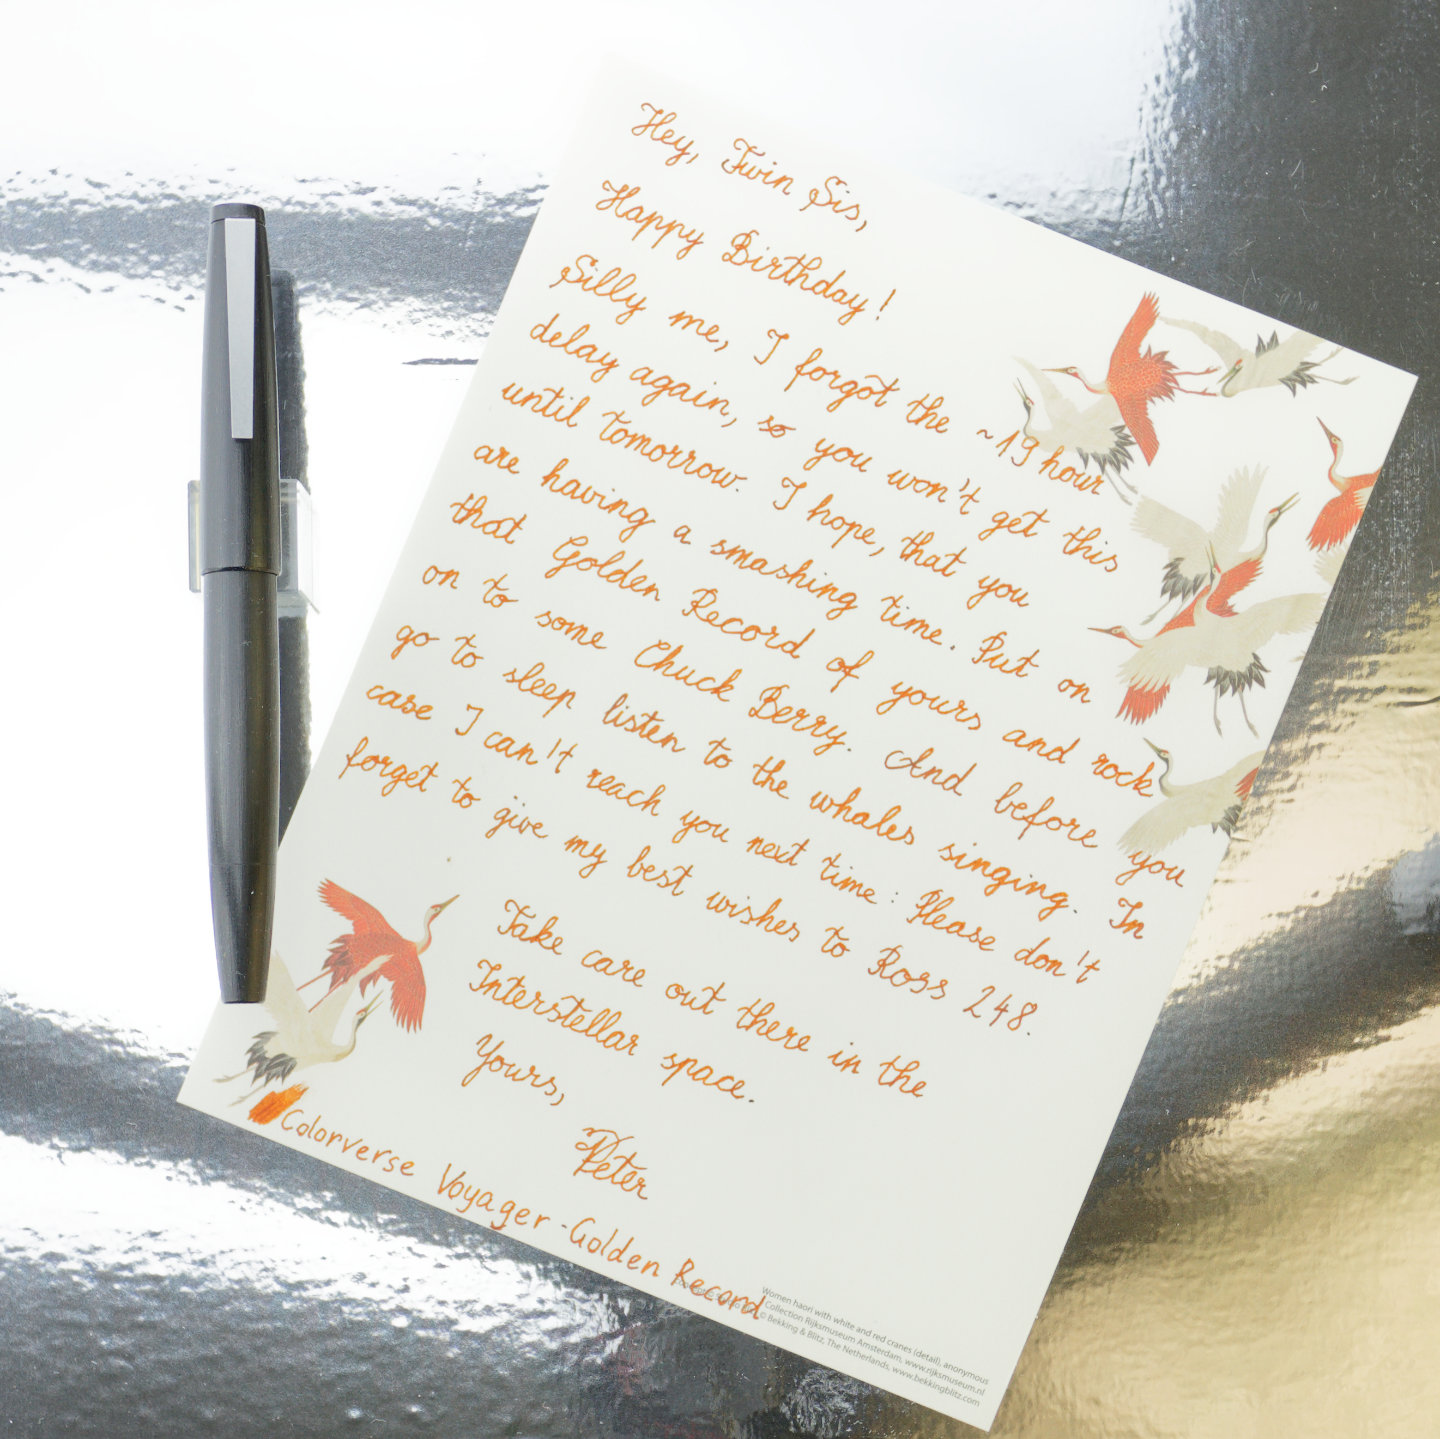 Hey, Twin Sis,
Happy Birthday!
Silly me, I forgot the ~19 hour
delay again, so you won't get this
until tomorrow. I hope, that you
are having a smashing time. Put on
that Golden Record of yours and rock
on to some Chuck Berry. And before you
go to sleep listen to the whales singing. In
case I can't reach you next time: Please don't
forget to give my best wishes to Ross 248.
Take care out there in the
Interstellar space.
Yours,
Peter
Colorverse Voyager - Golden Record
Women haori with white and red cranes (detail), anonymous
Collection Rijksmuseum Amsterdam, www.rijksmuseum.nl
© Bekking & Blitz, The Netherlands, www.bekkingblitz.com